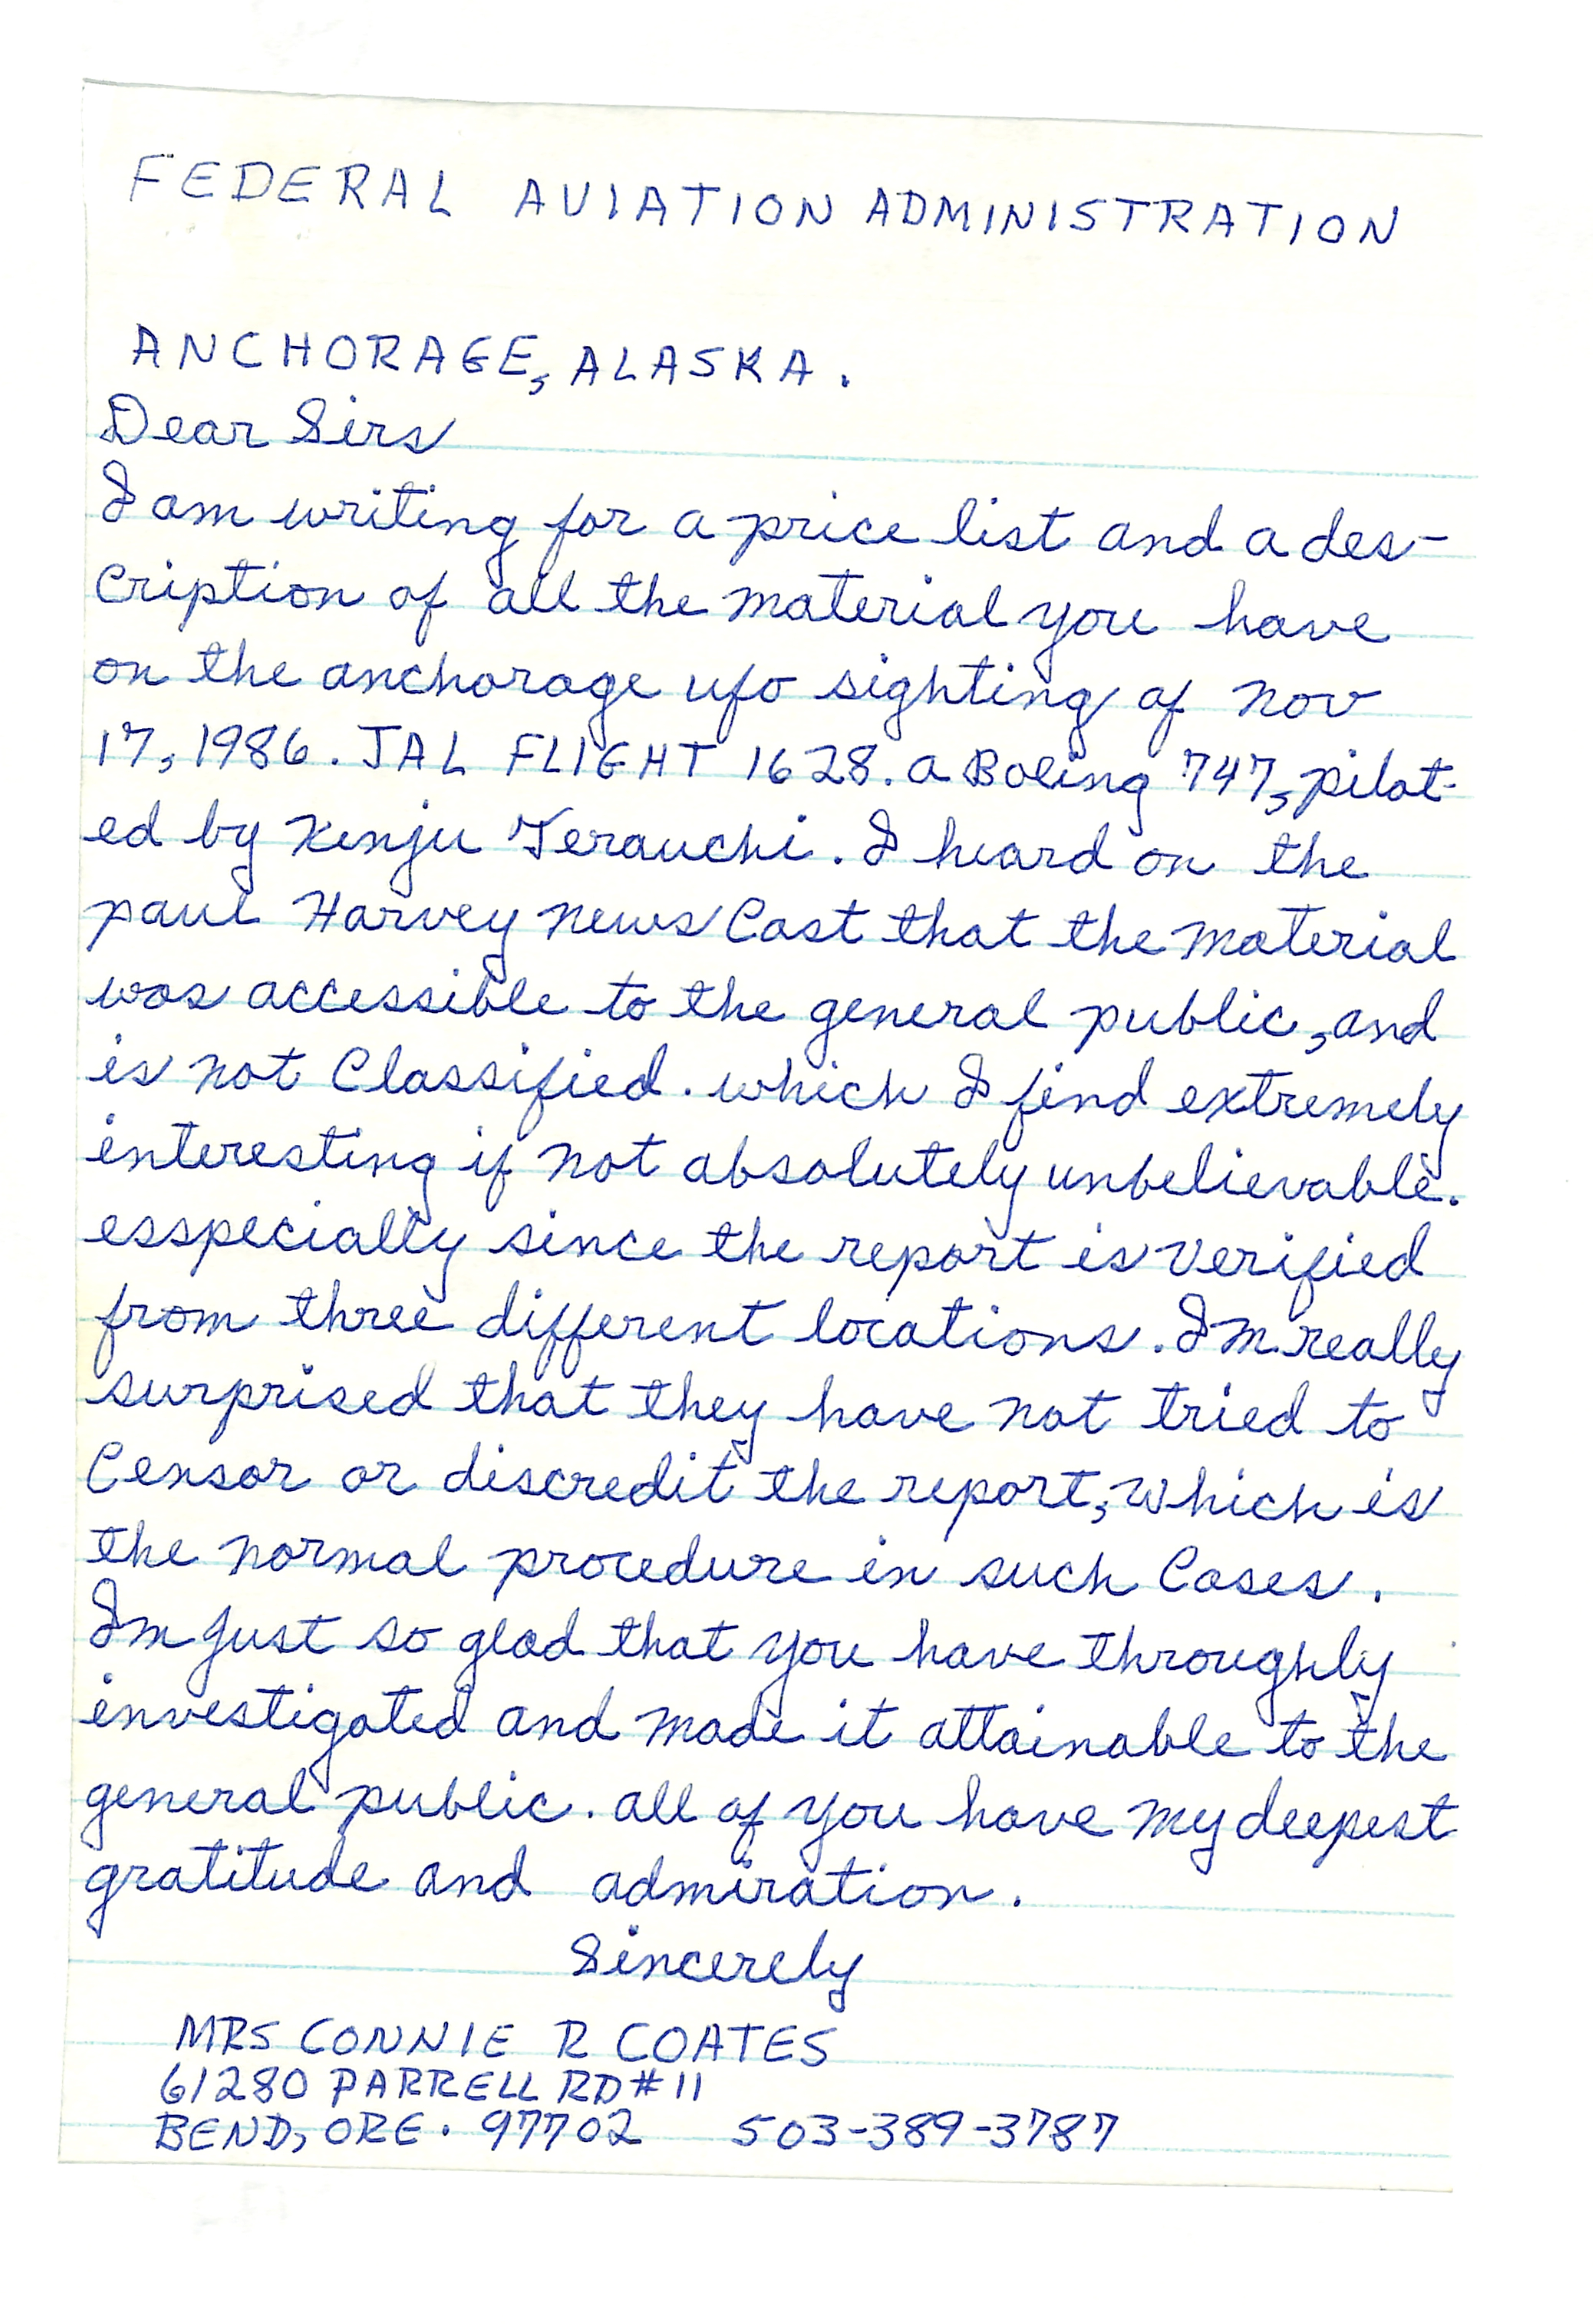 FEDERAL AVIATION ADMINISTRATION
ANCHORAGE, ALASKA.
Dear Sirs
I am writing for a price list and a des-
cription of all the material you have
on the anchorage ufo sighting of nov
17, 1986. JAL FLIGHT 1628. a Boeing 747, pilot-
ed by Kenju Terauchi. I heard on the
paul Harvey news Cast that the material
was accessible to the general public, and
is not Classified. which I find extremely
interesting if not absolutely unbelievable.
esspecially since the report is verified
from three different locations. Im really
surprised that they have not tried to
Censor or discredit the report, which is
the normal procedure in such Cases.
Im just so glad that you have throughly
investigated and made it attainable to the
general public. all of you have my deepest
gratitude and admiration.
Sincerely
MRS CONNIE R COATES
61280 PARRELL RD #11
BEND, ORE. 97702 503-389-3787